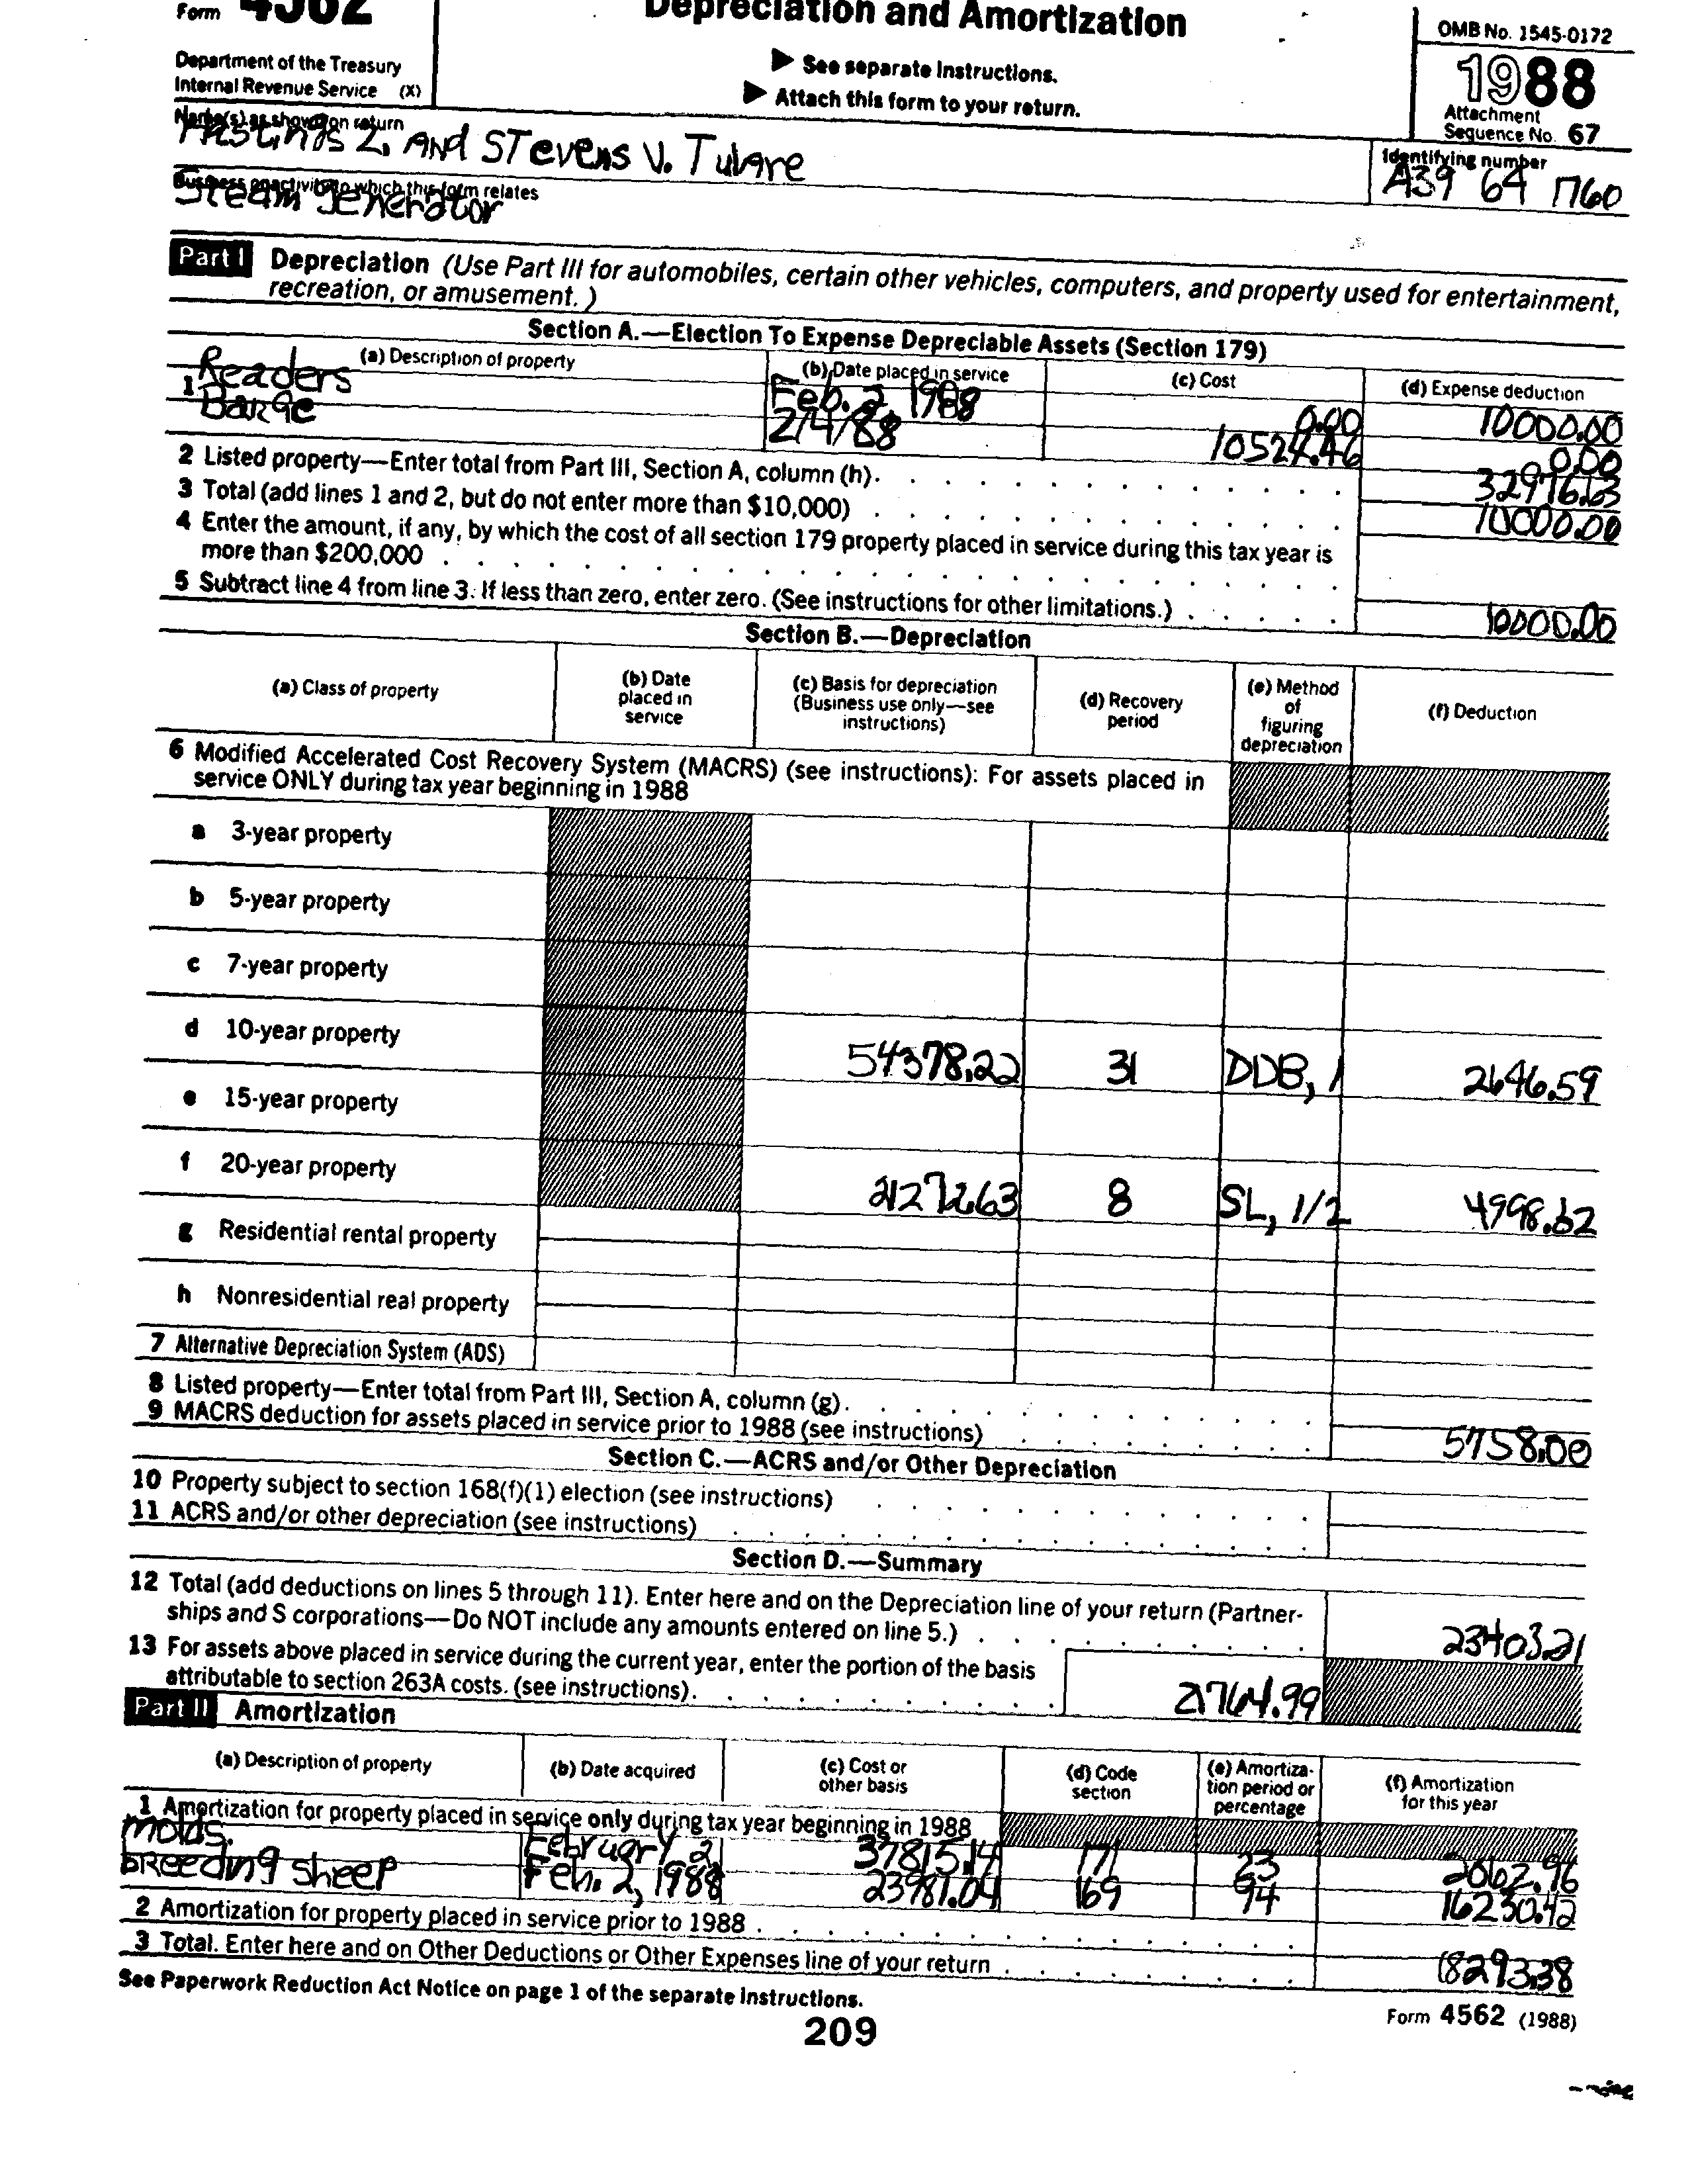 Form 4562
Depreciation and Amortization
OMB No. 1545-0172
Department of the Treasury
Internal Revenue Service (X)
▶ See separate Instructions.
▶ Attach this form to your return.
1988
Attachment
Sequence No. 67
Name(s) as shown on return
Hastings Z. And STevens V. Tulare
Identifying number
A39 64 1760
Business or activity to which this form relates
Steam generator
Part I Depreciation (Use Part III for automobiles, certain other vehicles, computers, and property used for entertainment,
recreation, or amusement.)
Section A.—Election To Expense Depreciable Assets (Section 179)
(a) Description of property (b) Date placed in service (c) Cost (d) Expense deduction
1 Readers Feb. 2, 1988 0.00 10000.00
Barge 2/4/88 10524.46 0.00
2 Listed property—Enter total from Part III, Section A, column (h). 32976.63
3 Total (add lines 1 and 2, but do not enter more than $10,000) 10000.00
4 Enter the amount, if any, by which the cost of all section 179 property placed in service during this tax year is
more than $200,000
5 Subtract line 4 from line 3. If less than zero, enter zero. (See instructions for other limitations.) 10000.00
Section B.—Depreciation
(a) Class of property
(b) Date
placed in
service
(c) Basis for depreciation
(Business use only—see
instructions)
(d) Recovery
period
(e) Method
of
figuring
depreciation
(f) Deduction
6 Modified Accelerated Cost Recovery System (MACRS) (see instructions): For assets placed in
service ONLY during tax year beginning in 1988
a 3-year property
b 5-year property
c 7-year property
d 10-year property 54378.22 31 DDB, 1 2646.59
e 15-year property
f 20-year property 21272.63 8 SL, 1/2 4998.62
g Residential rental property
h Nonresidential real property
7 Alternative Depreciation System (ADS)
8 Listed property—Enter total from Part III, Section A, column (g).
9 MACRS deduction for assets placed in service prior to 1988 (see instructions) 5758.00
Section C.—ACRS and/or Other Depreciation
10 Property subject to section 168(f)(1) election (see instructions)
11 ACRS and/or other depreciation (see instructions)
Section D.—Summary
12 Total (add deductions on lines 5 through 11). Enter here and on the Depreciation line of your return (Partner-
ships and S corporations—Do NOT include any amounts entered on line 5.) 23403.21
13 For assets above placed in service during the current year, enter the portion of the basis
attributable to section 263A costs. (see instructions). 21764.99
Part II Amortization
(a) Description of property
(b) Date acquired
(c) Cost or
other basis
(d) Code
section
(e) Amortiza-
tion period or
percentage
(f) Amortization
for this year
1 Amortization for property placed in service only during tax year beginning in 1988
molds. February 2, 37815.14 171 23 2062.96
breeding sheep Feb. 2, 1988 23981.04 169 94 16230.42
2 Amortization for property placed in service prior to 1988
3 Total. Enter here and on Other Deductions or Other Expenses line of your return 18293.38
See Paperwork Reduction Act Notice on page 1 of the separate Instructions.
Form 4562 (1988)
209